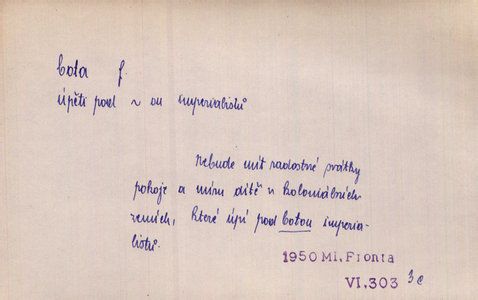 bota f.
úpěti pod ~ ou imperialistů
Nebude mít radostné svátky
pokoje a míru dítě v koloniálních
zemích, které úpí pod botou imperia-
listů.
1950 Ml. Fronta
VI. 303 3c